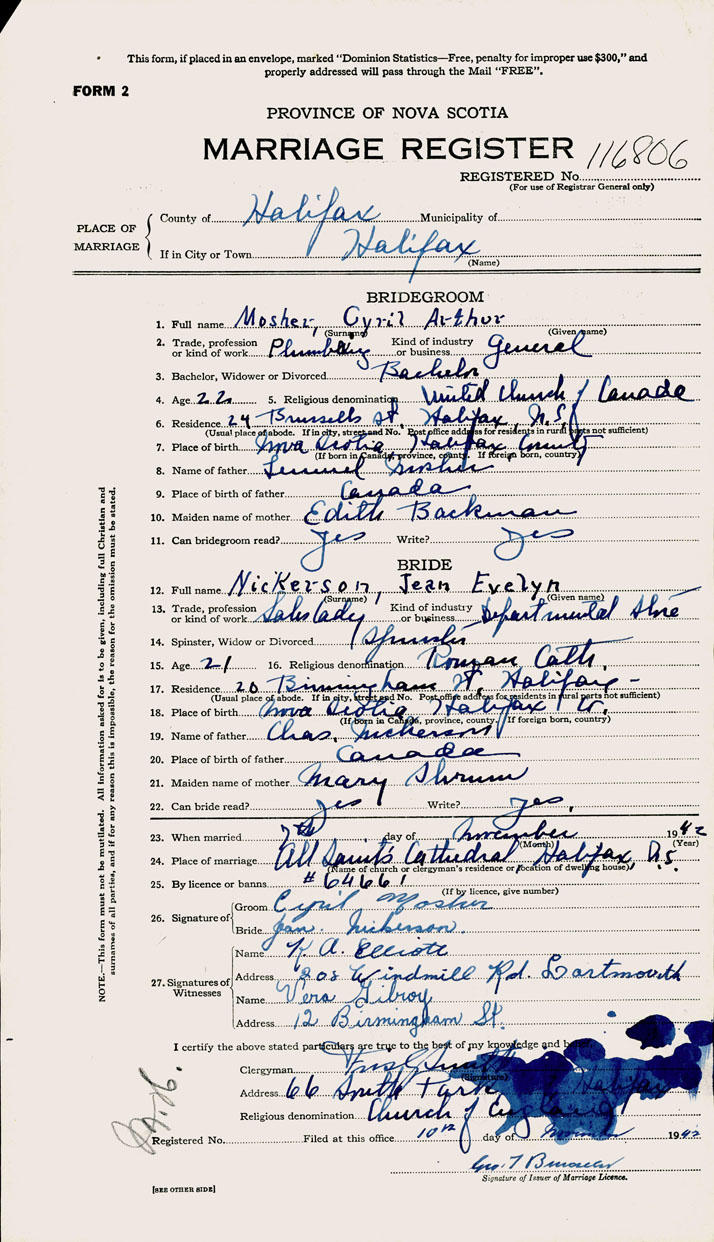 This form, if placed in an envelope, marked "Dominion Statistics—Free, penalty for improper use $300," and
properly addressed will pass through the Mail "FREE".
FORM 2
PROVINCE OF NOVA SCOTIA
MARRIAGE REGISTER 116806
REGISTERED No.
(For use of Registrar General only)
PLACE OF MARRIAGE
County of Halifax Municipality of
If in City or Town Halifax
(Name)
BRIDEGROOM
1. Full name Mosher, Cyril Arthur
(Surname) (Given name)
2. Trade, profession or kind of work Plumbing Kind of industry or business General
3. Bachelor, Widower or Divorced Bachelor
4. Age 22 5. Religious denomination United Church of Canada
6. Residence 24 Brussells St. Halifax, N.S.
(Usual place of abode. If in city, street and No. Post office address for residents in rural parts not sufficient)
7. Place of birth Nova Scotia Halifax County
(If born in Canada, province, county. If foreign born, country)
8. Name of father Lemuel Mosher
9. Place of birth of father Canada
10. Maiden name of mother Edith Backman
11. Can bridegroom read? Yes Write? Yes
BRIDE
12. Full name Nickerson, Jean Evelyn
(Surname) (Given name)
13. Trade, profession or kind of work Saleslady Kind of industry or business Departmental Store
14. Spinster, Widow or Divorced Spinster
15. Age 21 16. Religious denomination Roman Cath.
17. Residence 20 Birmingham St, Halifax -
(Usual place of abode. If in city, street and No. Post office address for residents in rural parts not sufficient)
18. Place of birth Nova Scotia Halifax Co.
(If born in Canada, province, county. If foreign born, country)
19. Name of father Chas. Nickerson
20. Place of birth of father Canada
21. Maiden name of mother Mary Shrum
22. Can bride read? Yes Write? Yes,
23. When married 7th day of November 1942
(Month) (Year)
24. Place of marriage All Saints Cathedral Halifax N.S.
(Name of church or clergyman's residence or location of dwelling house)
25. By licence or banns # 64661
(If by licence, give number)
26. Signature of
Groom Cyril Mosher
Bride Jean Nickerson.
27. Signatures of Witnesses
Name K. A. Elliott
Address 208 Windmill Rd. Dartmouth
Name Vera Gilroy
Address 12 Birmingham St.
I certify the above stated particulars are true to the best of my knowledge and belief.
Clergyman Smith
(Signature)
Address 66 South Park Halifax
Religious denomination Church of England
Registered No. Filed at this office 10th day of November 1942
Geo. T
Signature of Issuer of Marriage Licence.
[SEE OTHER SIDE]
NOTE.—This form must not be mutilated. All information asked for is to be given, including full Christian and
surnames of all parties, and if for any reason this is impossible, the reason for the omission must be stated.